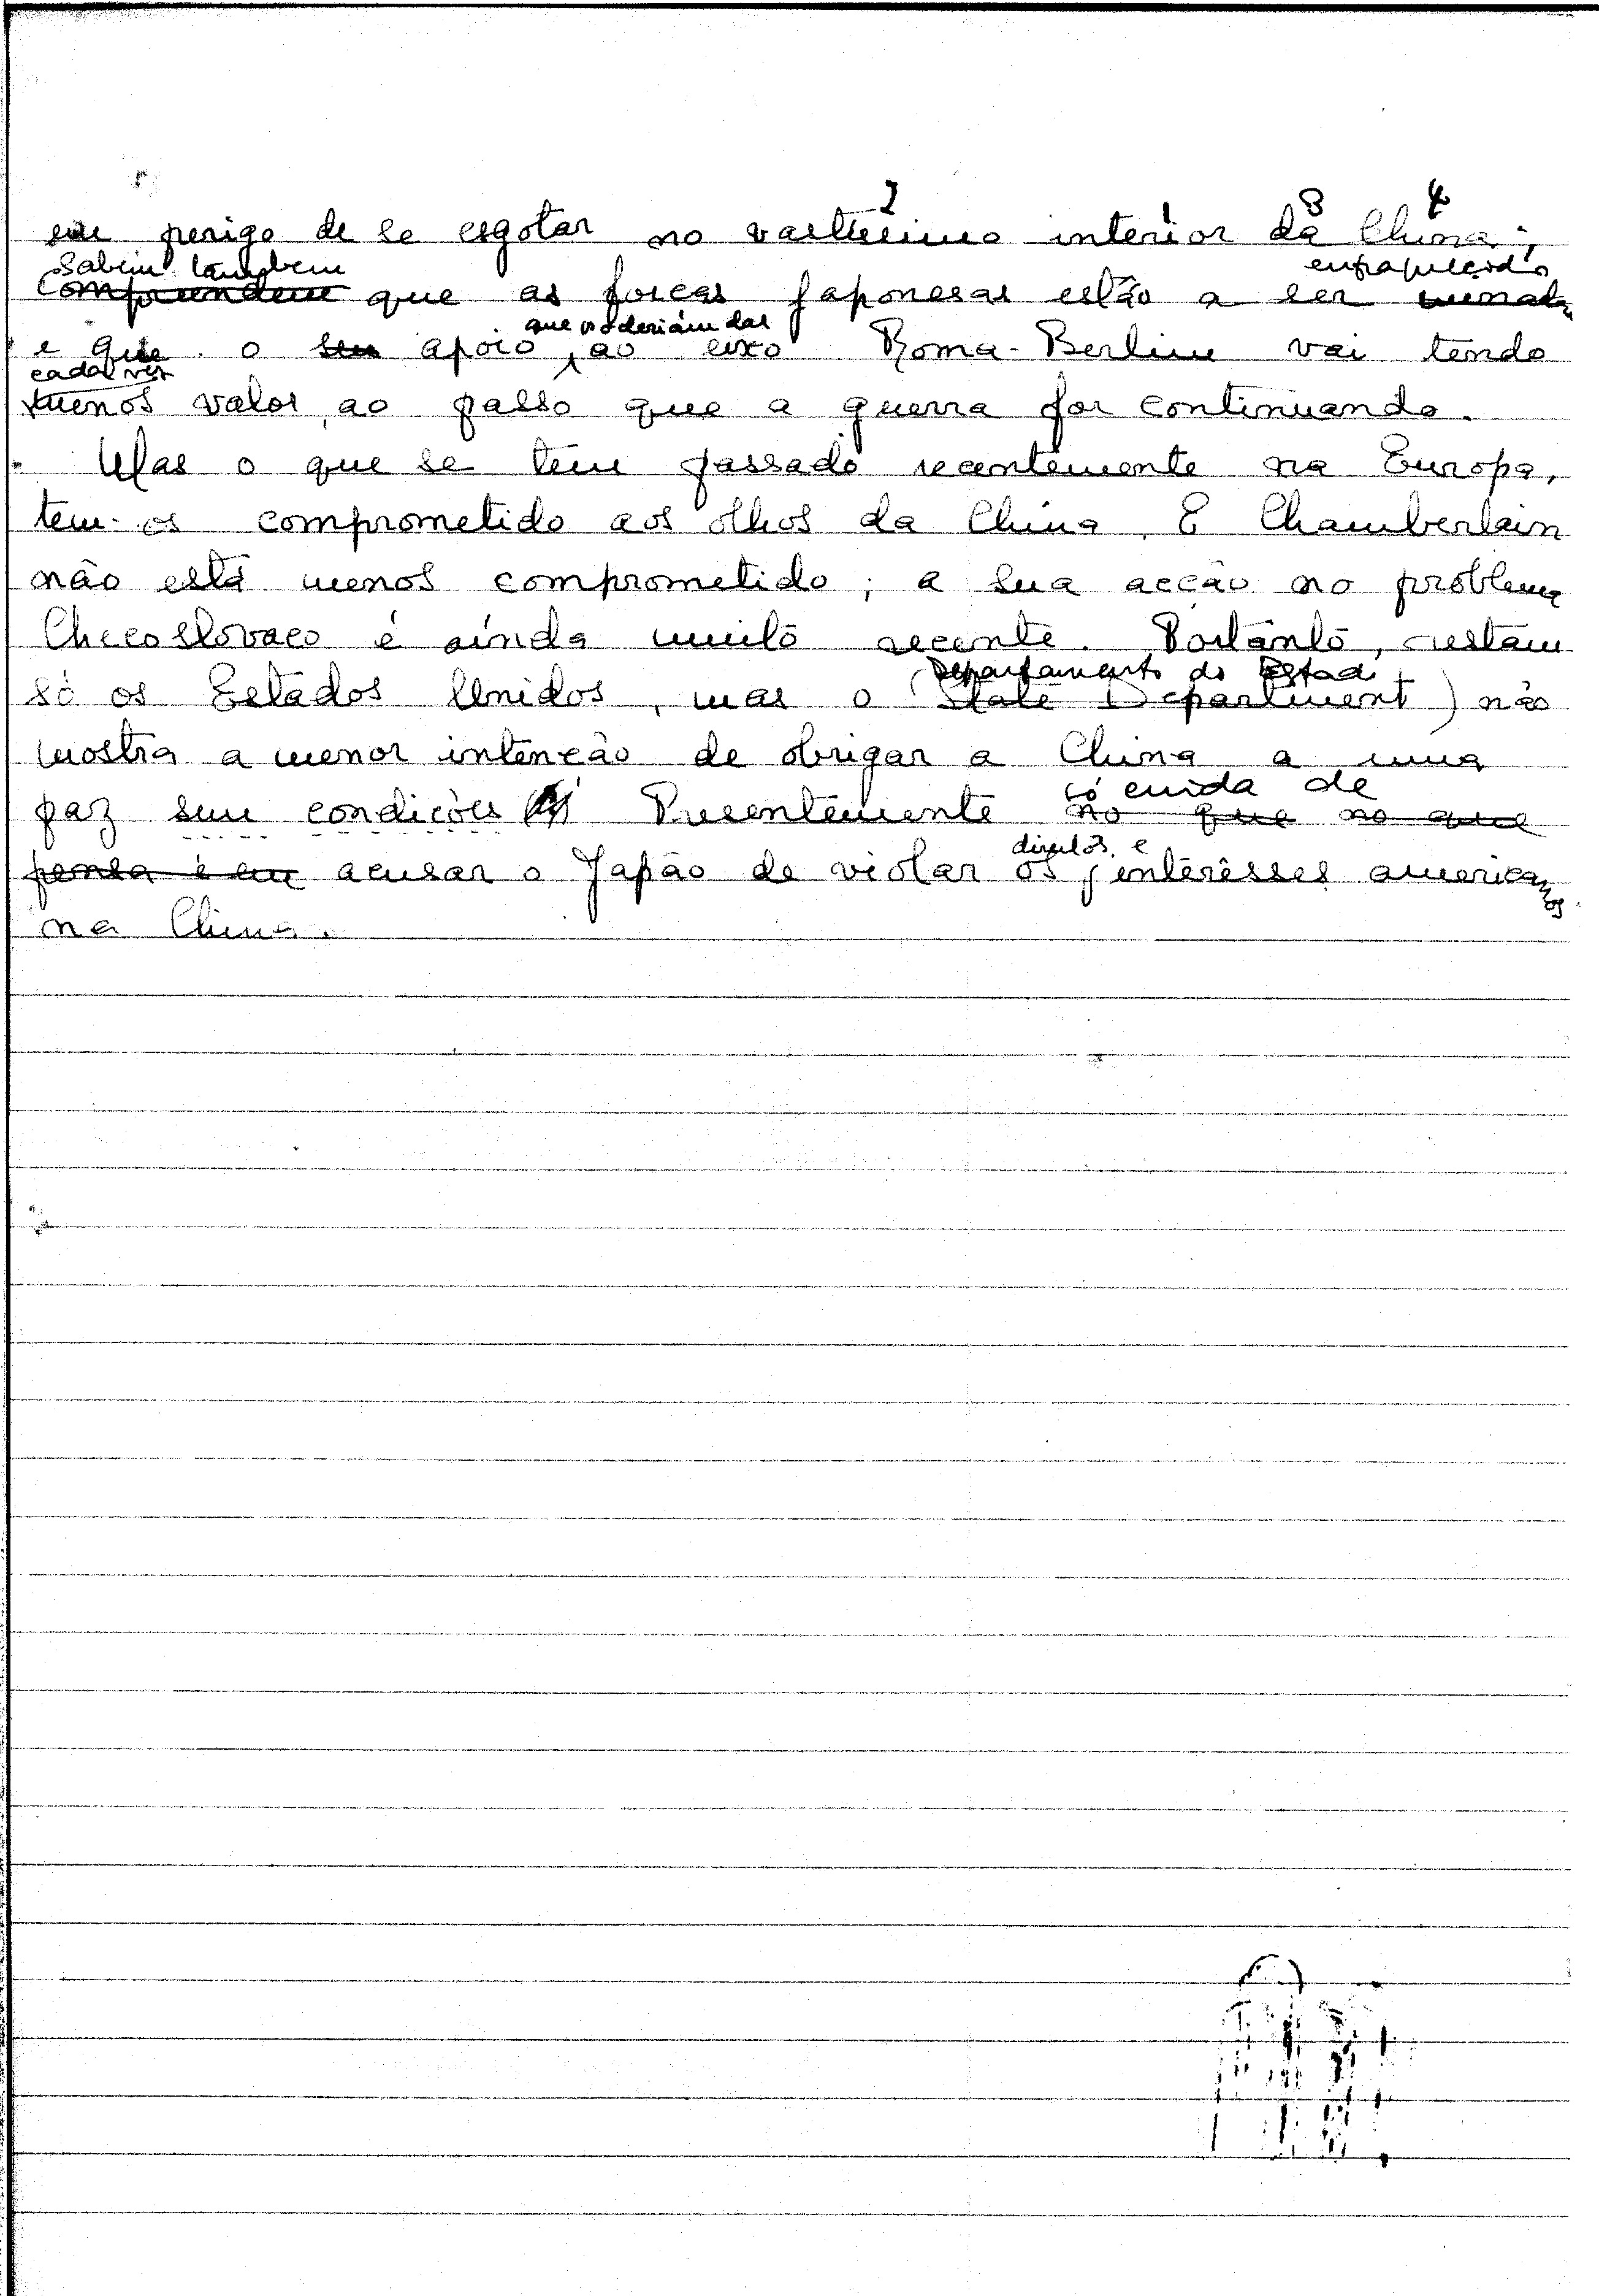 em perigo de se esgotar no vastíssimo interior da China;
2 1 3 4
sabem também
compreendem que as forças japonesas estão a ser minadas
enfraquecidas
e que o seu apoio, ao eixo Roma-Berlim vai tendo
que poderiam dar
cada vez
menos valor, ao passo que a guerra for continuando.
Mas o que se tem passado recentemente na Europa,
tem-os comprometido aos olhos da China. E Chamberlain
não está menos comprometido; a sua acção no problema
Checoslovaco é ainda muito recente. Portanto, restam
Departamento do Estado
só os Estados Unidos, mas o (State Department) não
mostra a menor intenção de obrigar a China a uma
só cuida de
paz sem condições Presentemente no que no que
direitos e
pensa é em acusar o Japão de violar os interêsses americanos
na China.